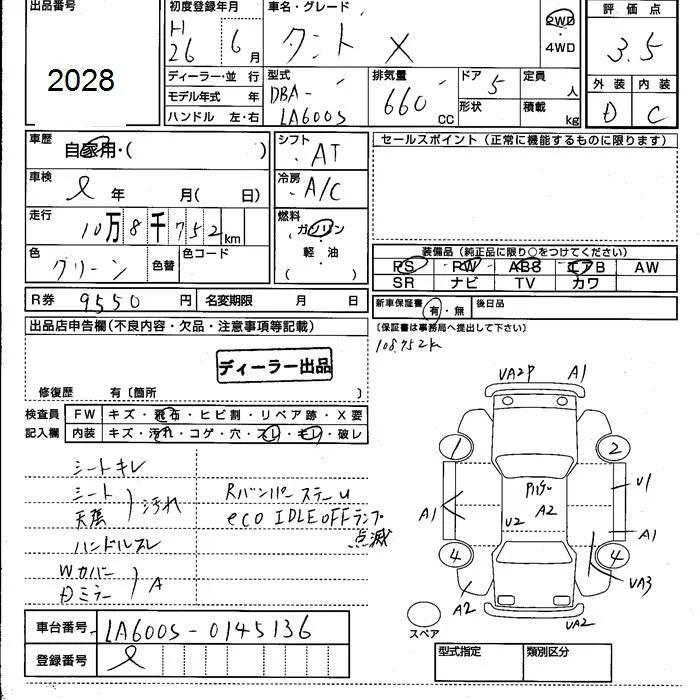 出品番号
2028
初度登録年月
H
26 6月
車名・グレード
タント X
2WD
・
4WD
評価点
3.5
外装 内装
D C
ディーラー・並行
モデル年式 年
ハンドル 左・右
型式
DBA-
LA600S
排気量
660 cc
ドア 5
形状
定員 人
積載 kg
車歴
自家用・( )
車検
年 月( 日)
走行
10万8千752km
色
グリーン
色替
色コード
シフト
AT
冷房
A/C
燃料
ガソリン
軽油
( )
セールスポイント(正常に機能するものに限ります)
装備品(純正品に限り○をつけてください)
PS PW ABS エアB AW
SR ナビ TV カワ
R券 9550円
名変期限 月 日
新車保証書 有・無
後日品
(保証書は事務局へ提出して下さい)
108752k
出品店申告欄(不良内容・欠品・注意事項等記載)
ディーラー出品
修復歴 有〔箇所 〕
検査員
記入欄
FW キズ・飛石・ヒビ割・リペア跡・X要
内装 キズ・汚れ・コゲ・穴・スレ・モレ・破レ
シートキレ
シート
天張
汚れ
ハンドルスレ
Wカバー
Dミラー
A
Rバンパーステー U
eco IDLE OFFランプ
点滅
UA2P A1
1 2
A1
U2
A2
U1
A1
4 4
A2
UA3
UA2
スペア
車台番号 LA600S-0145136
登録番号
型式指定 類別区分